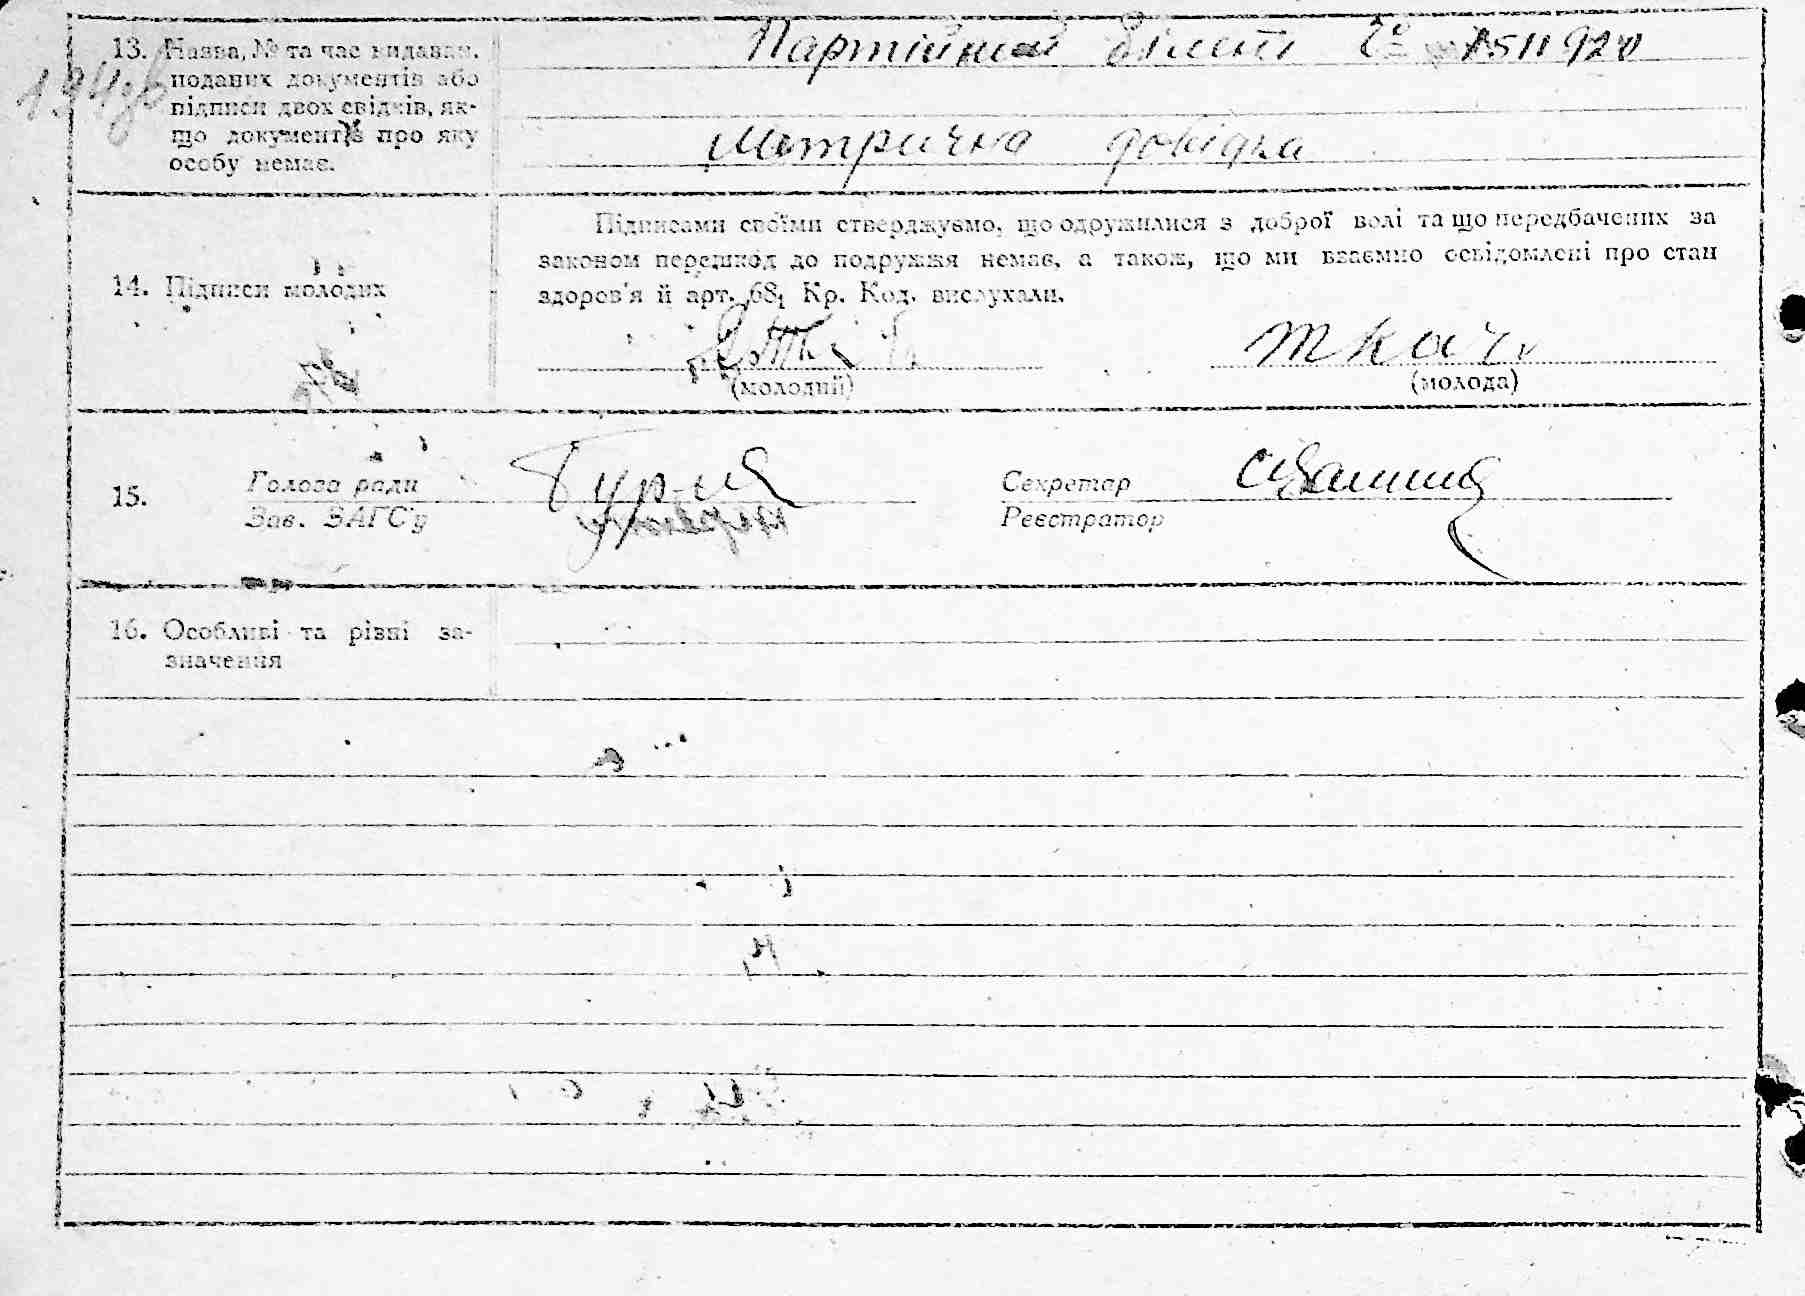 13. Назва, № та час видаван.
поданих документів або
підписи двох свідків, як-
що документів про яку
особу немає.
Партійний білет № 1511920
Метрична довідка
14. Підписи молодих
Підписами своїми стверджуємо, що одружилися з доброї волі та що передбачених за
законом перешкод до подружжя немає, а також, що ми взаємно освідомлені про стан
здоров'я й арт. 68₁ Кр. Код. вислухали.
Ткач
(молодий)
(молода)
15.
Голова ради
Зав. ЗАГС'у
Секретар
Реєстратор
16. Особливі та різні за-
значення